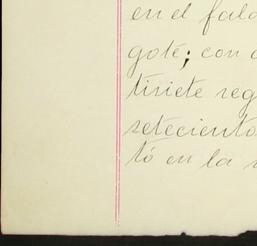 en el fald
goté; con
tiriete reg
setecient
tó en la